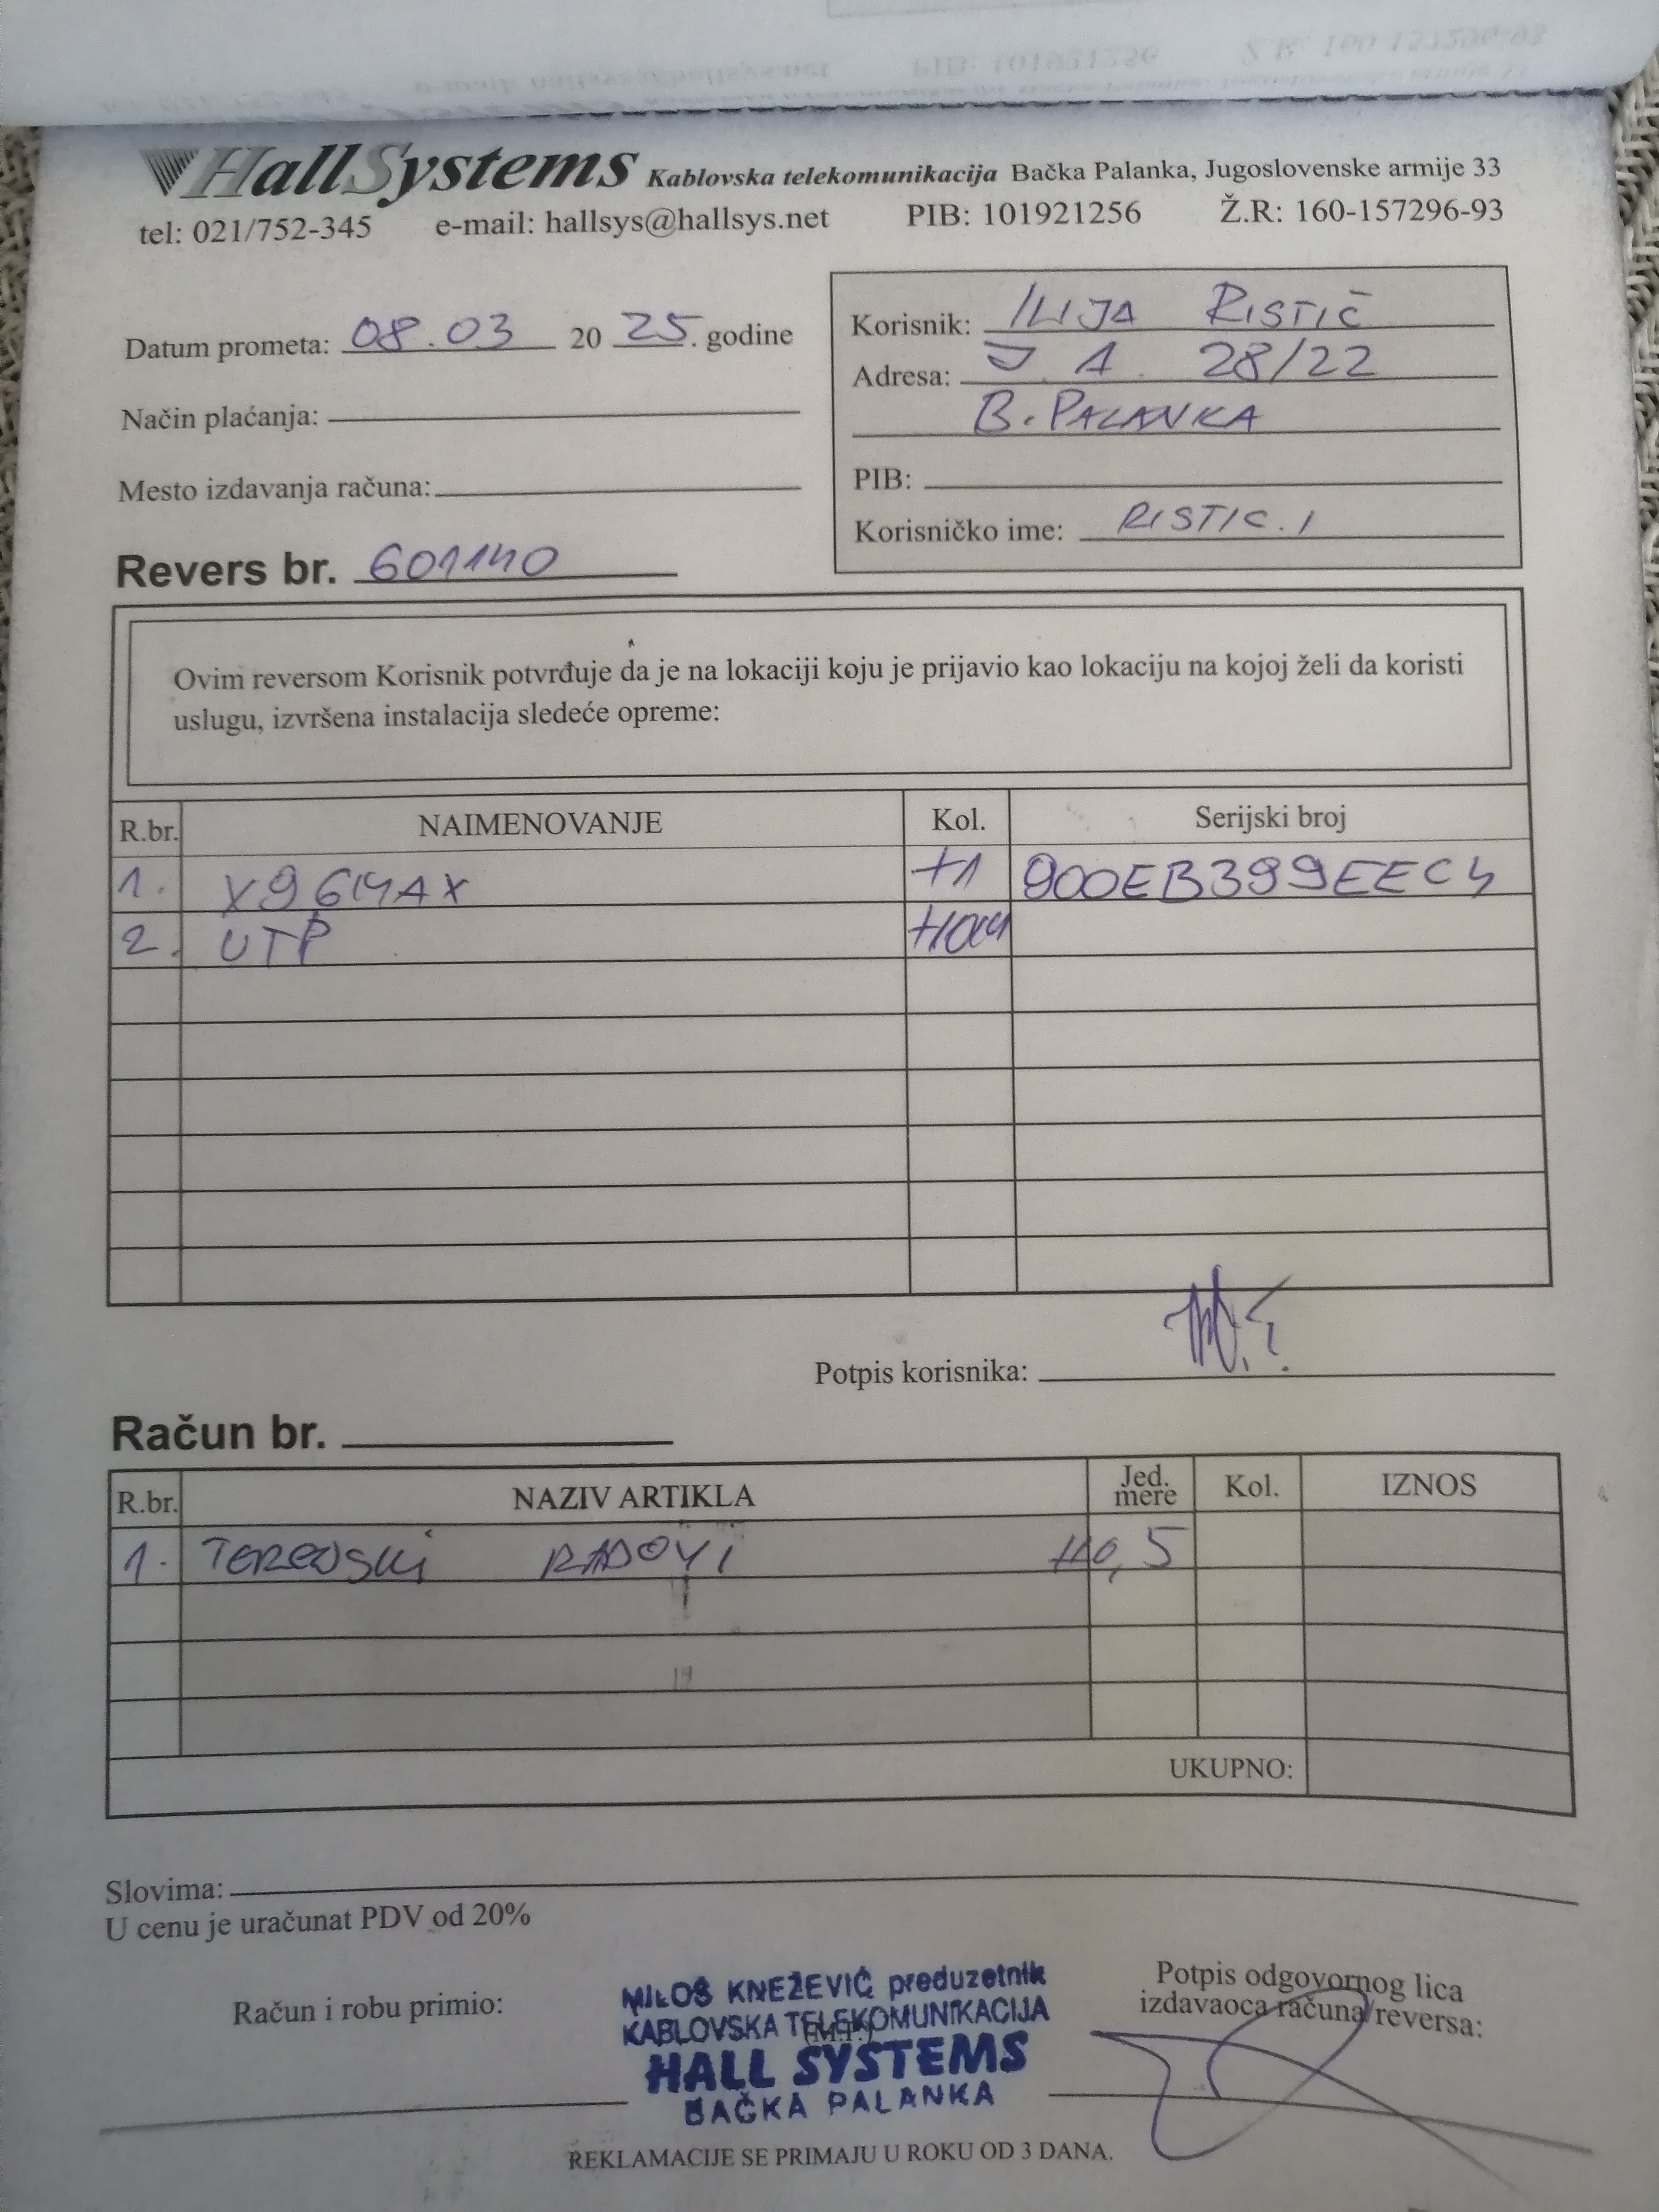 HallSystems Kablovska telekomunikacija Bačka Palanka, Jugoslovenske armije 33
tel: 021/752-345 e-mail: hallsys@hallsys.net PIB: 101921256 Ž.R: 160-157296-93
Datum prometa: 08.03 20 25. godine
Način plaćanja:
Mesto izdavanja računa:
Korisnik: ILIJA RISTIĆ
Adresa: J. A. 28/22
B. PALANKA
PIB:
Korisničko ime: RISTIC.I
Revers br. 601140
Ovim reversom Korisnik potvrđuje da je na lokaciji koju je prijavio kao lokaciju na kojoj želi da koristi
uslugu, izvršena instalacija sledeće opreme:
R.br. NAIMENOVANJE Kol. Serijski broj
1. X96MAX +1 900EB399EEC4
2. UTP +10M
Potpis korisnika:
Račun br.
R.br. NAZIV ARTIKLA Jed. mere Kol. IZNOS
1. TERENSKI RADOVI +0,5
UKUPNO:
Slovima:
U cenu je uračunat PDV od 20%
Račun i robu primio:
MILOŠ KNEŽEVIĆ preduzetnik
KABLOVSKA TELEKOMUNIKACIJA
(M.P.)
HALL SYSTEMS
BAČKA PALANKA
Potpis odgovornog lica
izdavaoca računa/reversa:
REKLAMACIJE SE PRIMAJU U ROKU OD 3 DANA.